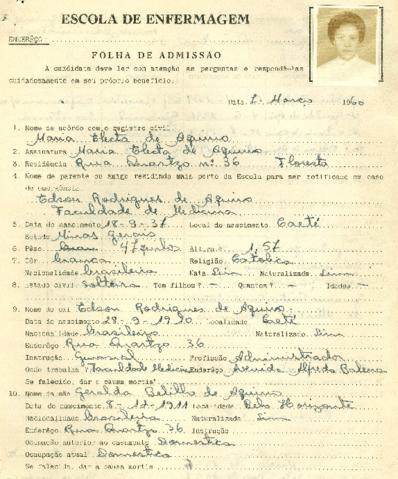 ESCOLA DE ENFERMAGEM
ENDERÊÇO
FOLHA DE ADMISSÃO
A candidata deve ler com atenção as perguntas e respondê-las
cuidadosamente em seu próprio benefício.
Data 2. Março 1960
1. Nome de acôrdo com o registro civil
Maria Electa de Aquino
2. Assinatura Maria Electa de Aquino
3. Residência Rua Quartzo nº 36 Floresta
4. Nome de parente ou amigo residindo mais perto da Escola para ser notificado em caso
de emergência
Edson Rodrigues de Aquino
Faculdade de Medicina
5. Data do nascimento 18-9-37 Local do nascimento Caeté
Estado Minas Gerais
6. Pêso 47 quilos Altura 1,57
7. Côr branca Religião Católica
Nacionalidade brasileira Nata Sim Naturalizada
8. Estado civil solteira Tem filhos? - Quantos? - Idades -
9. Nome do pai Edson Rodrigues de Aquino
Data do nascimento 28-9-1910 Localidade Caeté
Nacionalidade brasileiro Naturalizado Sim
Enderêço Rua Quartzo 36
Instrução Ginasial Profissão Administrador
Onde trabalha Faculdade Medicina Enderêço Avenida Alfredo Balena
Se falecido, dar a causa mortis
10. Nome da mãe Geralda Belillo de Aquino
Data do nascimento 8-12-1911 Localidade Belo Horizonte
Nacionalidade brasileira Naturalizada Sim
Enderêço Rua Quartzo 36 Instrução
Ocupação anterior ao casamento Domestica
Ocupação atual Domestica
Se falecida, dar a causa mortis